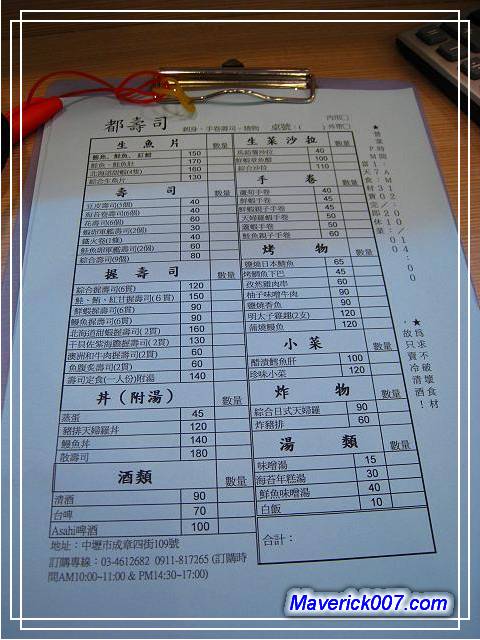 都壽司
刺身、手卷壽司、燒物 桌號:( ) 內用□ 外帶□
生魚片 數量
鮪魚、鮭魚、紅魽 150
鮭魚、鮭魚肚 170
北海道甜蝦(4隻) 160
綜合生魚片 130
壽司 數量
豆皮壽司(3個) 40
海苔卷壽司(6個) 40
花壽司(6個) 60
蝦卵軍艦壽司(2個) 30
鐵火卷(1條) 40
鮭魚卵軍艦壽司(2個) 60
綜合壽司(9個) 80
握壽司 數量
綜合握壽司(6貫) 120
鮭、鮪、紅甘握壽司(6貫) 150
鮮蝦握壽司(6貫) 90
鰻魚握壽司(6貫) 90
北海道甜蝦握壽司(2貫) 160
干貝佐紫海膽握壽司(2貫) 130
澳洲和牛肉握壽司(2貫) 60
魚腹炙壽司(2貫) 60
壽司定食(一人份)附湯 140
丼(附湯) 數量
蒸蛋 45
豬排天婦羅丼 120
鰻魚丼 140
散壽司 180
酒類 數量
清酒 90
台啤 70
Asahi啤酒 100
地址:中壢市成章四街109號
訂購專線:03-4612682 0911-817265 (訂購時
間AM10:00~11:00 & PM14:30~17:00)
生菜沙拉 數量
馬鈴薯沙拉 40
鮮蝦章魚醋 100
綜合沙拉 110
手卷 數量
蘆筍手卷 40
鮮蝦手卷 50
鮮蝦親子手卷 50
天婦羅蝦手卷 50
蘆蝦手卷 50
鮭魚親子手卷 60
烤物 數量
鹽燒日本鯖魚 65
烤鯛魚下巴 45
孜然雞肉串 60
柚子味噌牛肉 90
鹽燒香魚 90
明太子雞翅(2支) 120
蒲燒鰻魚 120
小菜 數量
醋漬鱈魚肝 100
珍味小菜 120
炸物 數量
綜合日式天婦羅 90
炸豬排 60
湯類 數量
味噌湯 15
海苔年糕湯 30
鮮魚味噌湯 40
白飯 10
合計:
★為求不破壞食材
故只賣冷清酒!
Maverick007.com